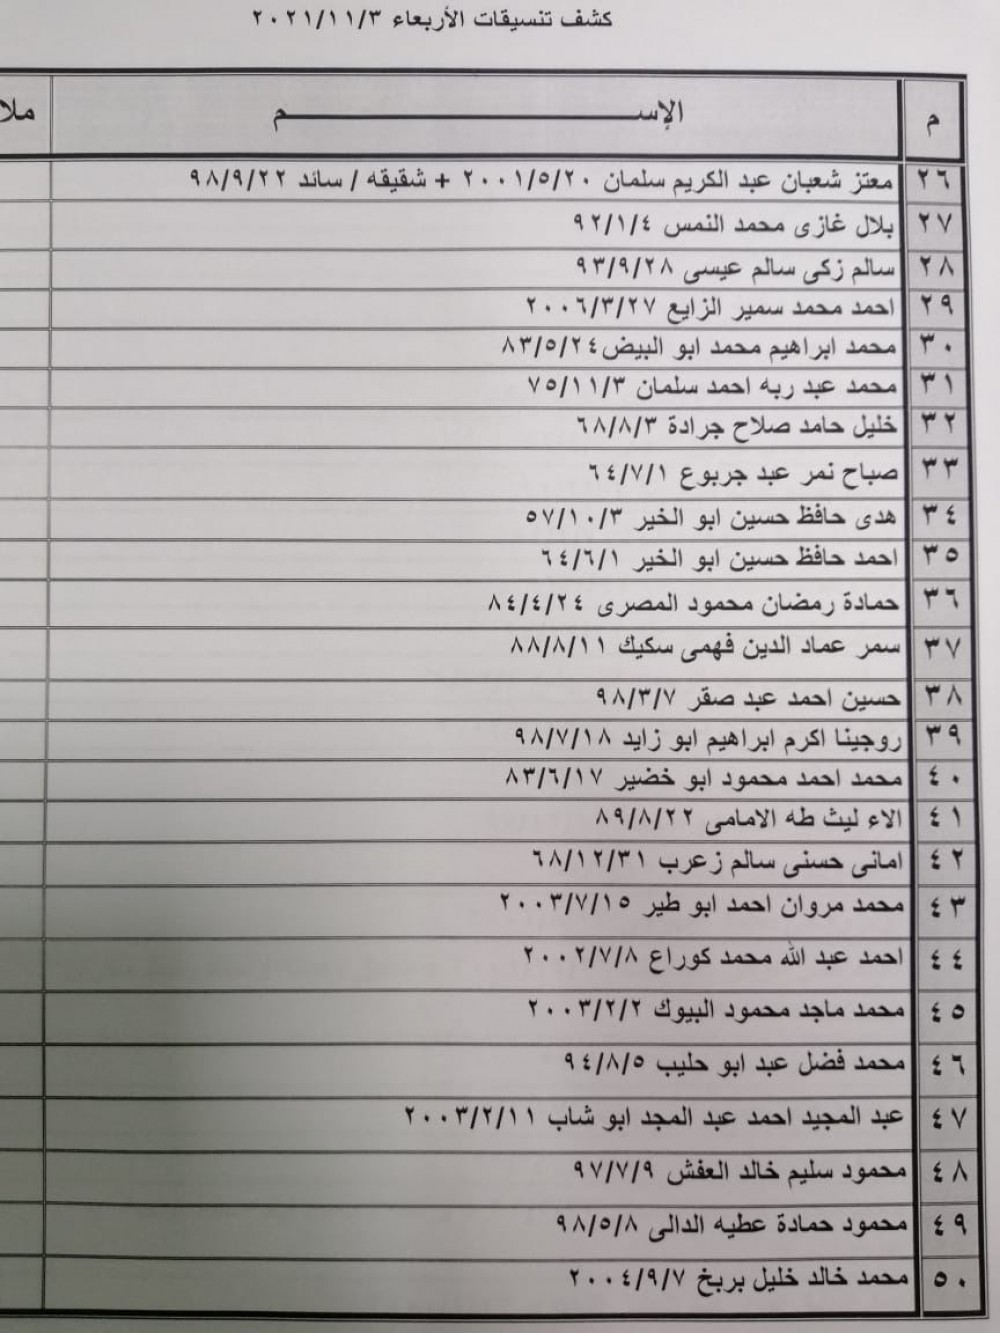 كشف تنسيقات الأربعاء ٢٠٢١/١١/٣
م الإســـــــــم ملا
٢٦ معتز شعبان عبد الكريم سلمان ٢٠٠١/٥/٢٠ + شقيقه / سائد ٩٨/٩/٢٢
٢٧ بلال غازى محمد النمس ٩٢/١/٤
٢٨ سالم زكى سالم عيسى ٩٣/٩/٢٨
٢٩ احمد محمد سمير الزايع ٢٠٠٦/٣/٢٧
٣٠ محمد ابراهيم محمد ابو البيض ٨٣/٥/٢٤
٣١ محمد عبد ربه احمد سلمان ٧٥/١١/٣
٣٢ خليل حامد صلاح جرادة ٦٨/٨/٣
٣٣ صباح نمر عبد جربوع ٦٤/٧/١
٣٤ هدى حافظ حسين ابو الخير ٥٧/١٠/٣
٣٥ احمد حافظ حسين ابو الخير ٦٤/٦/١
٣٦ حمادة رمضان محمود المصرى ٨٤/٤/٢٤
٣٧ سمر عماد الدين فهمى سكيك ٨٨/٨/١١
٣٨ حسين احمد عبد صقر ٩٨/٣/٧
٣٩ روجينا اكرم ابراهيم ابو زايد ٩٨/٧/١٨
٤٠ محمد احمد محمود ابو خضير ٨٣/٦/١٧
٤١ الاء ليث طه الامامى ٨٩/٨/٢٢
٤٢ امانى حسنى سالم زعرب ٦٨/١٢/٣١
٤٣ محمد مروان احمد ابو طير ٢٠٠٣/٧/١٥
٤٤ احمد عبد الله محمد كوراع ٢٠٠٢/٧/٨
٤٥ محمد ماجد محمود البيوك ٢٠٠٣/٢/٢
٤٦ محمد فضل عبد ابو حليب ٩٤/٨/٥
٤٧ عبد المجيد احمد عبد المجد ابو شاب ٢٠٠٣/٢/١١
٤٨ محمود سليم خالد العفش ٩٧/٧/٩
٤٩ محمود حمادة عطيه الدالى ٩٨/٥/٨
٥٠ محمد خالد خليل بربخ ٢٠٠٤/٩/٧